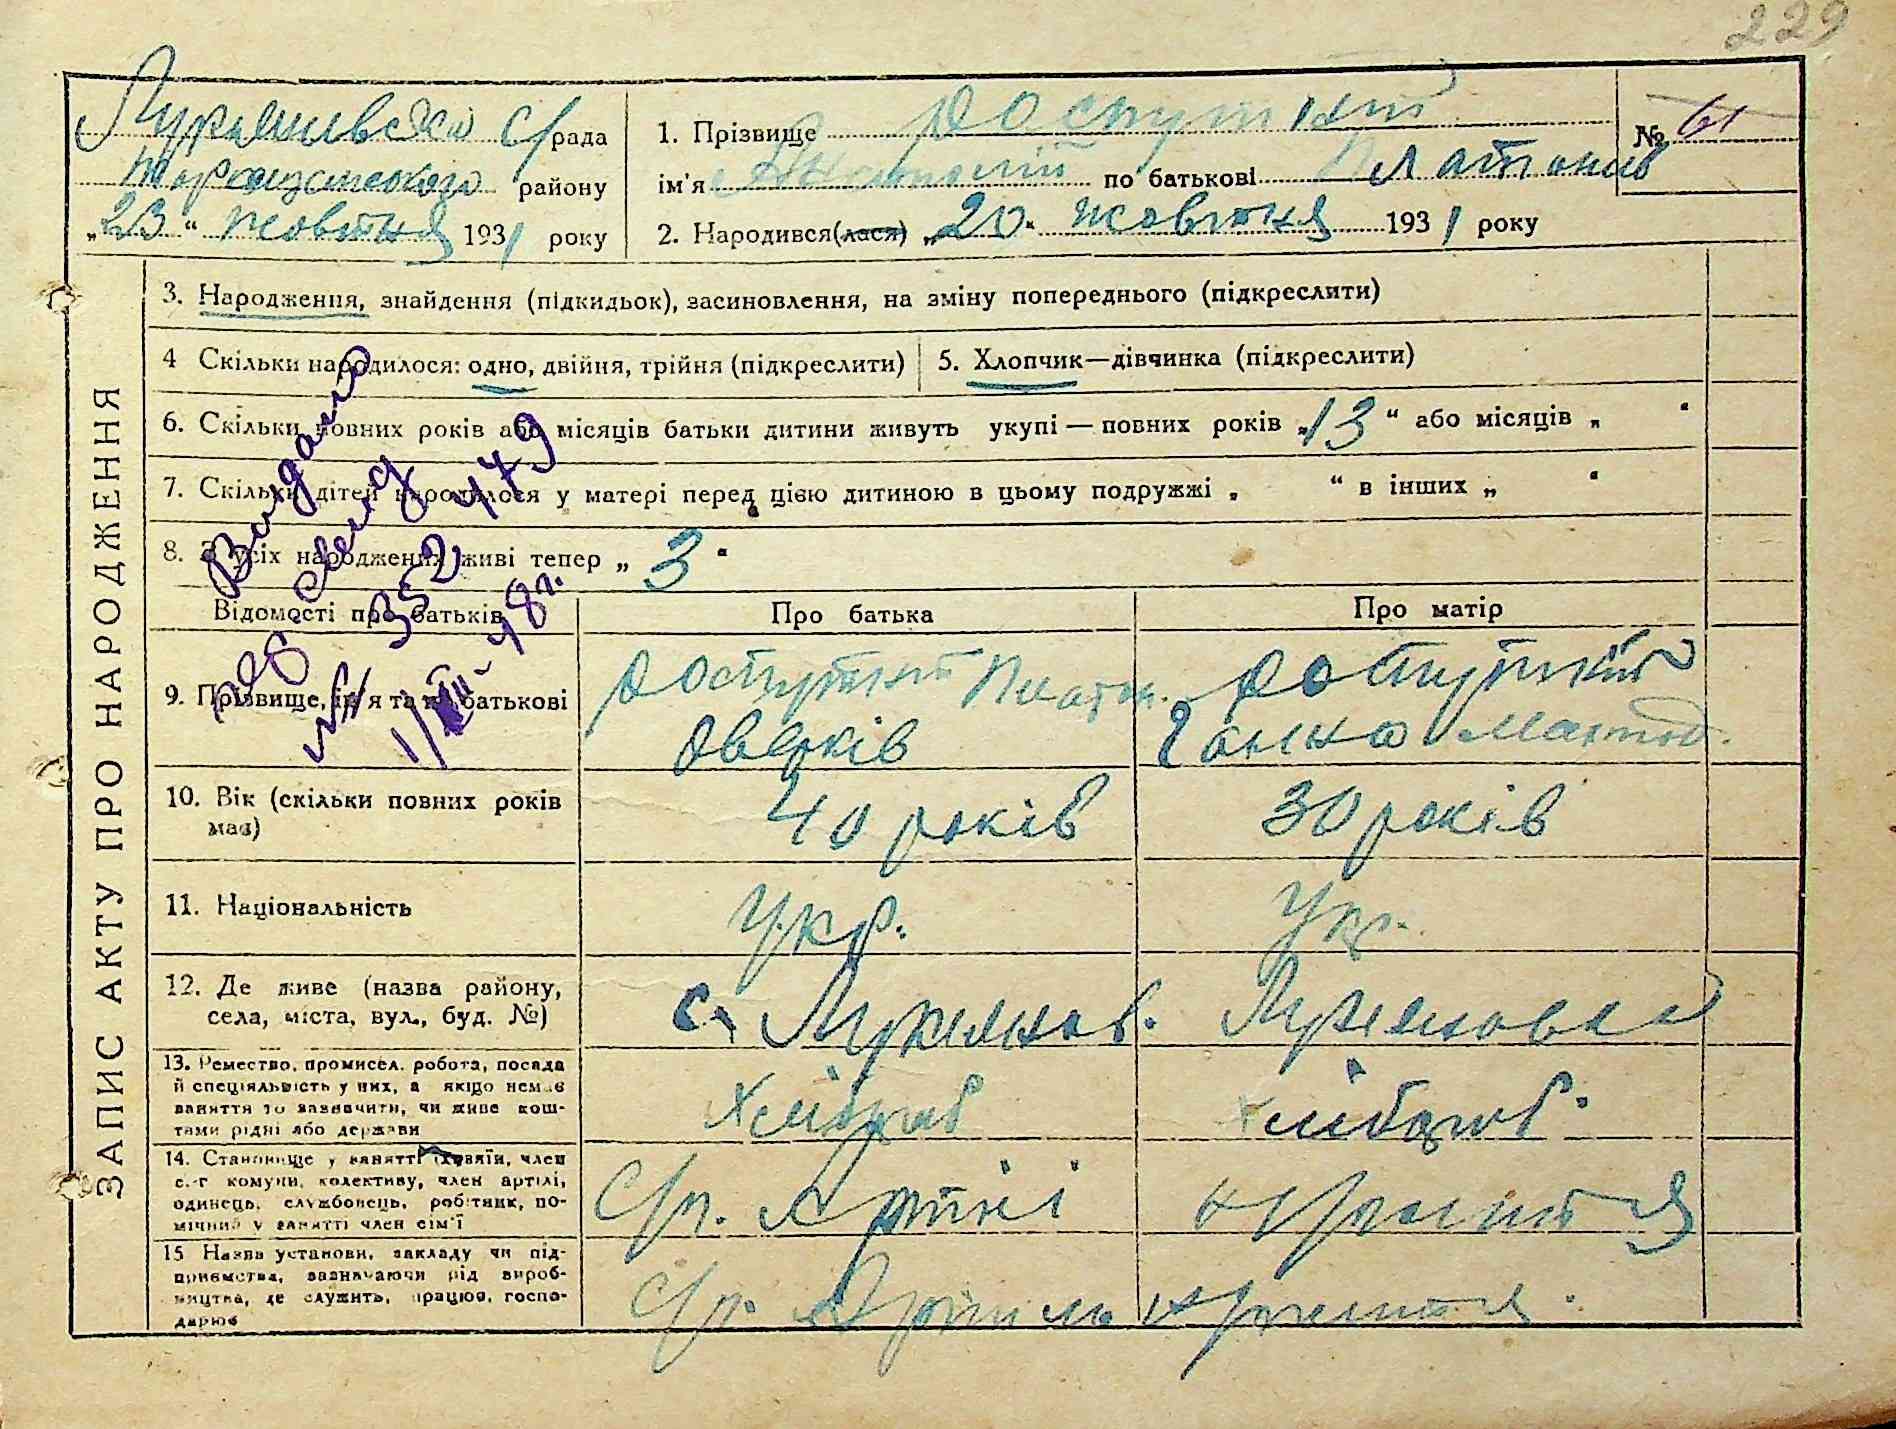 229
с/рада
району
„23“ жовтня 1931 року
1. Прізвище Доступний
ім'я Анатолій по батькові Платонів
№ 61
2. Народився(лася) „20“ жовтня 1931 року
ЗАПИС АКТУ ПРО НАРОДЖЕННЯ
3. Народження, знайдення (підкидьок), засиновлення, на зміну попереднього (підкреслити)
4 Скільки народилося: одно, двійня, трійня (підкреслити)
5. Хлопчик—дівчинка (підкреслити)
6. Скільки повних років або місяців батьки дитини живуть укупі — повних років „13“ або місяців „ “
7. Скільки дітей народилося у матері перед цією дитиною в цьому подружжі „ “ в інших „ “
8. З усіх народжених живі тепер „3“
Видано
свид
352479
1/XII-48г.
Відомості про батьків
Про батька
Про матір
9. Прізвище, ім'я та по батькові
Доступний Платон.
Доступний
Ганна
10. Вік (скільки повних років
має)
40 років
30 років
11. Національність
Укр.
Укр.
12. Де живе (назва району,
села, міста, вул., буд. №)
с.
13. Ремество, промисел, робота, посада
й спеціяльність у них, а якщо немає
заняття то зазначити, чи живе кош-
тами рідні або держави
хлібороб
хлібороб.
14. Становище у занятті (хазяїн, член
с.-г комуни, колективу, член артілі,
одинець, службовець, робітник, по-
мічний у занятті член сім'ї
Чл. Артілі
15 Назва установи, закладу чи під-
приємства, зазначаючи рід вироб-
ництва, де служить, працює, госпо-
дарює